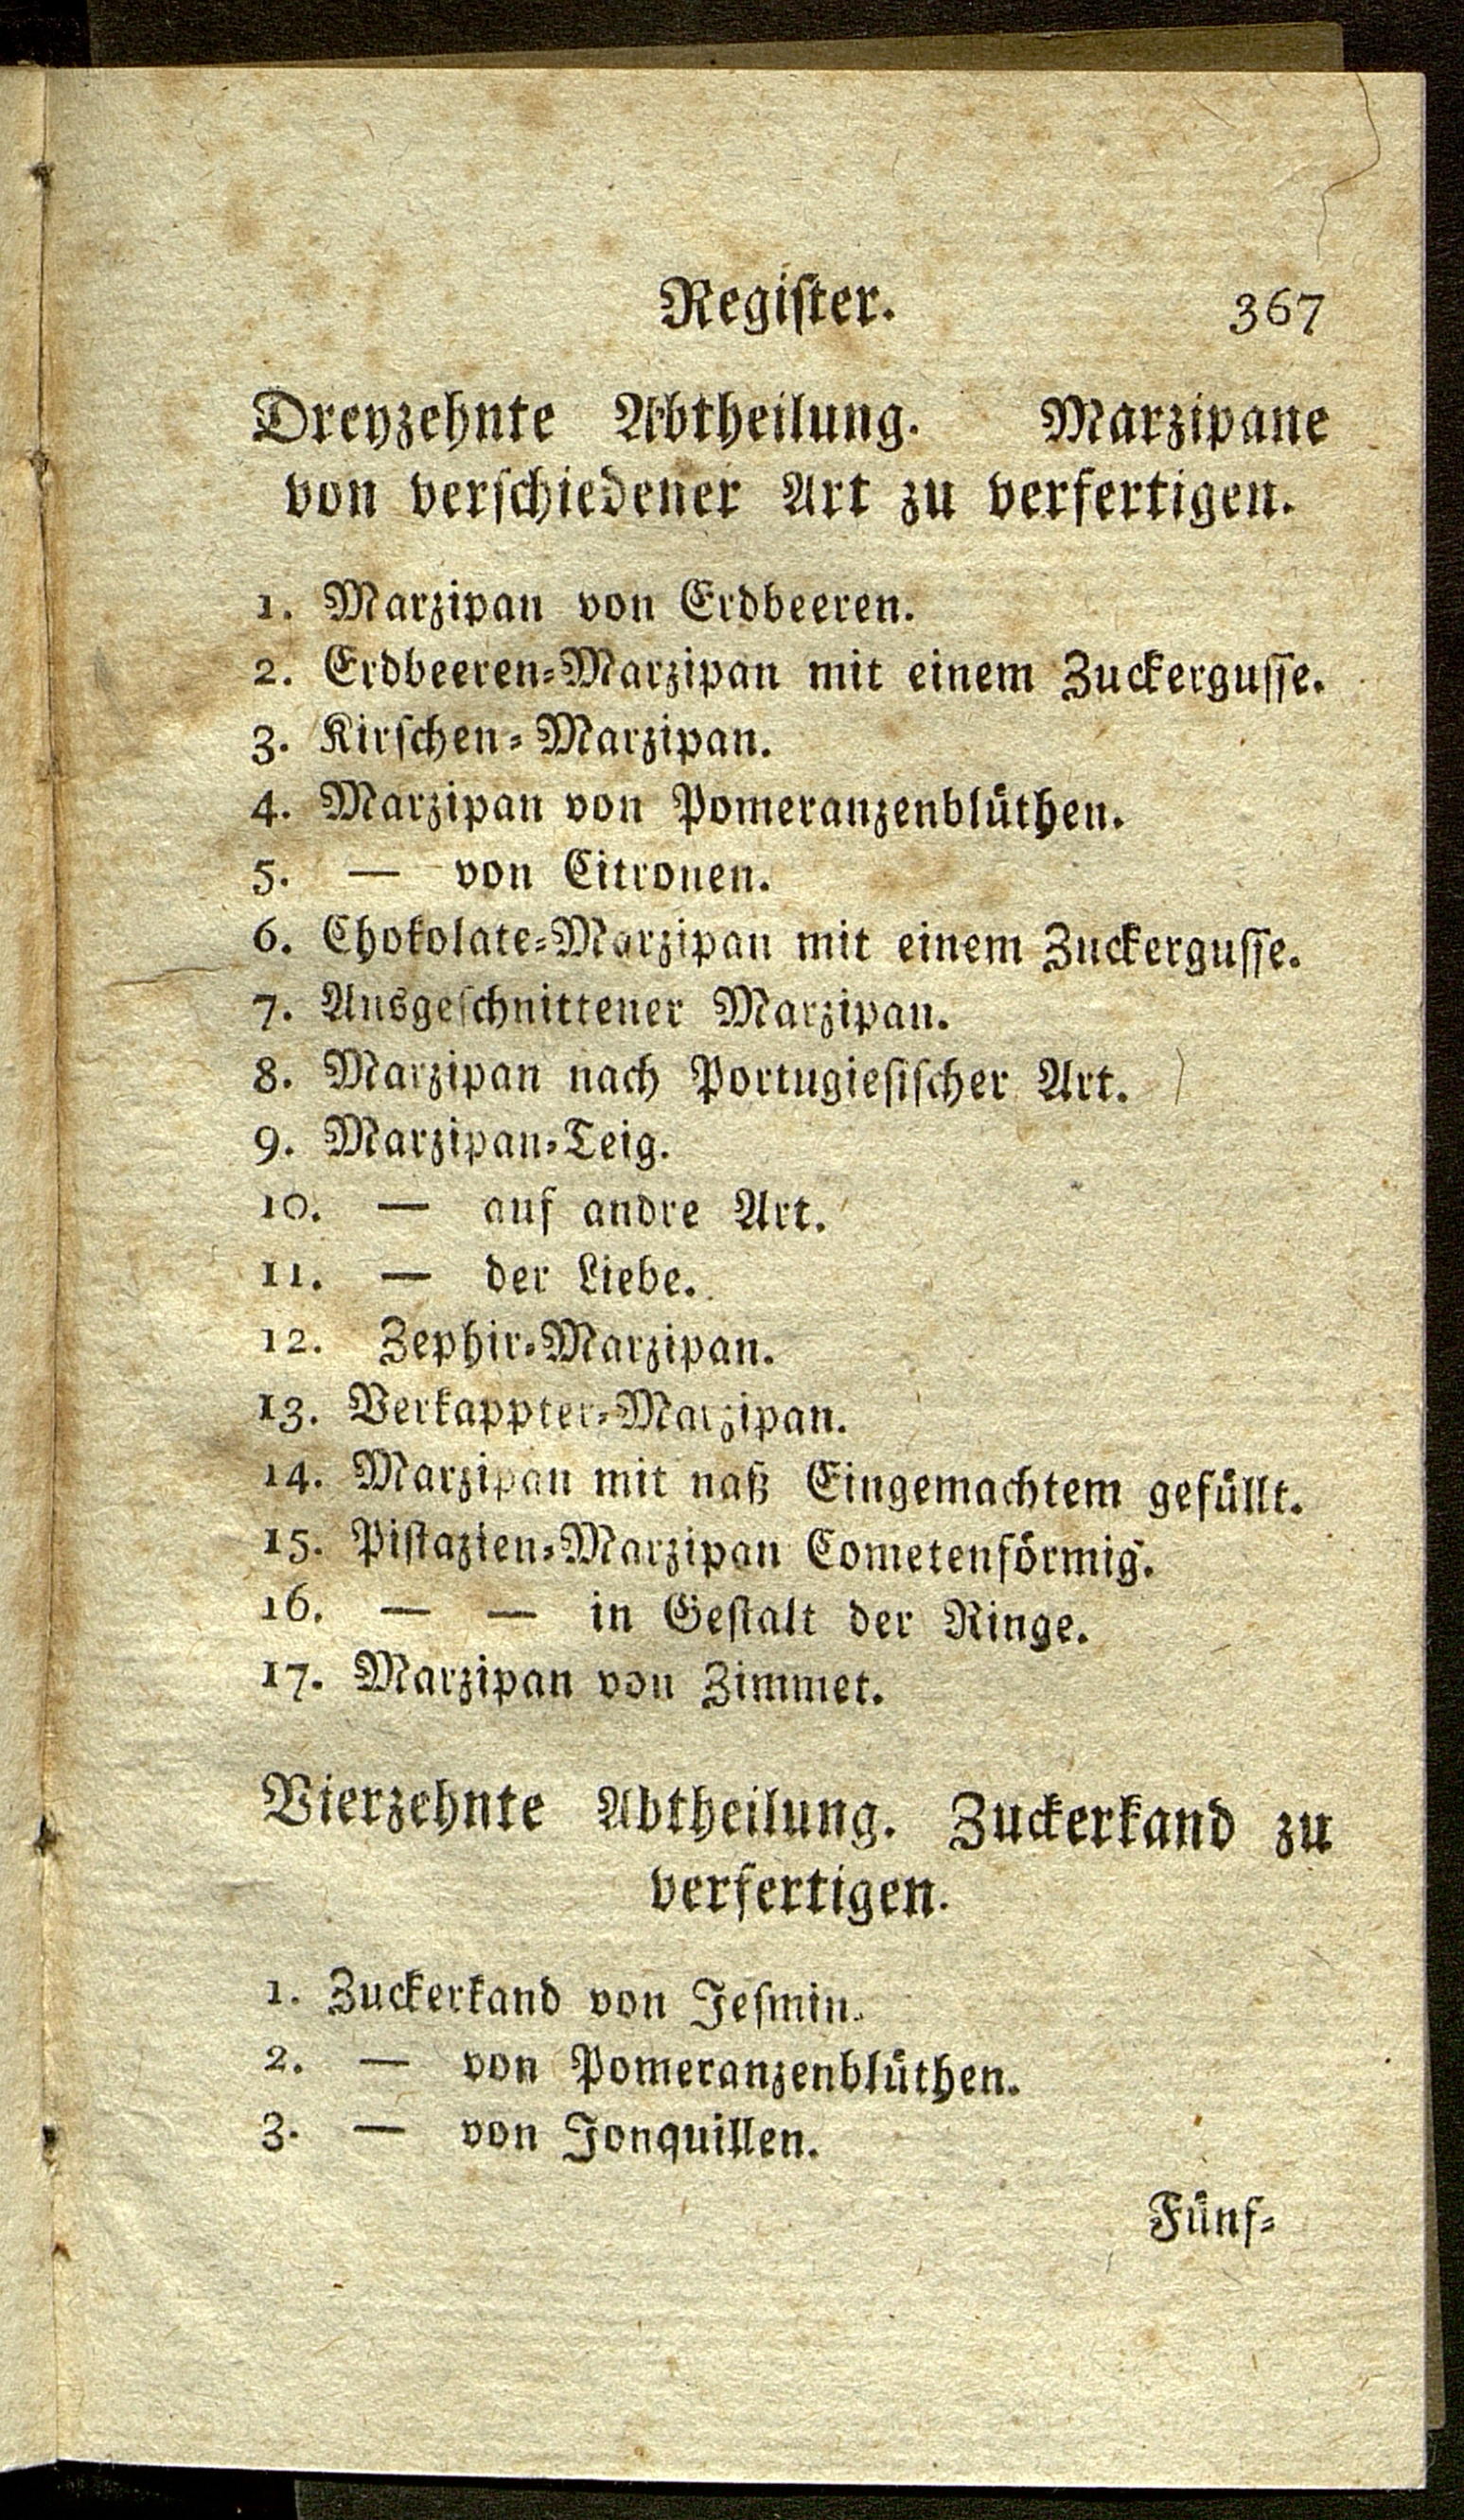 Register. 367
Dreyzehnte Abtheilung. Marzipane
von verschiedener Art zu verfertigen.
1. Marzipan von Erdbeeren.
2. Erdbeeren-Marzipan mit einem Zuckergusse.
3. Kirschen-Marzipan.
4. Marzipan von Pomeranzenblüthen.
5. — von Citronen.
6. Chokolate-Marzipan mit einem Zuckergusse.
7. Ausgeschnittener Marzipan.
8. Marzipan nach Portugiesischer Art.
9. Marzipan-Teig.
10. — auf andre Art.
11. — der Liebe.
12. Zephir-Marzipan.
13. Verkappter-Marzipan.
14. Marzipan mit naß Eingemachtem gefüllt.
15. Pistazien-Marzipan Cometenförmig.
16. — — in Gestalt der Ringe.
17. Marzipan von Zimmet.
Vierzehnte Abtheilung. Zuckerkand zu
verfertigen.
1. Zuckerkand von Jesmin.
2. — von Pomeranzenblüthen.
3. — von Jonquillen.
Fünf-